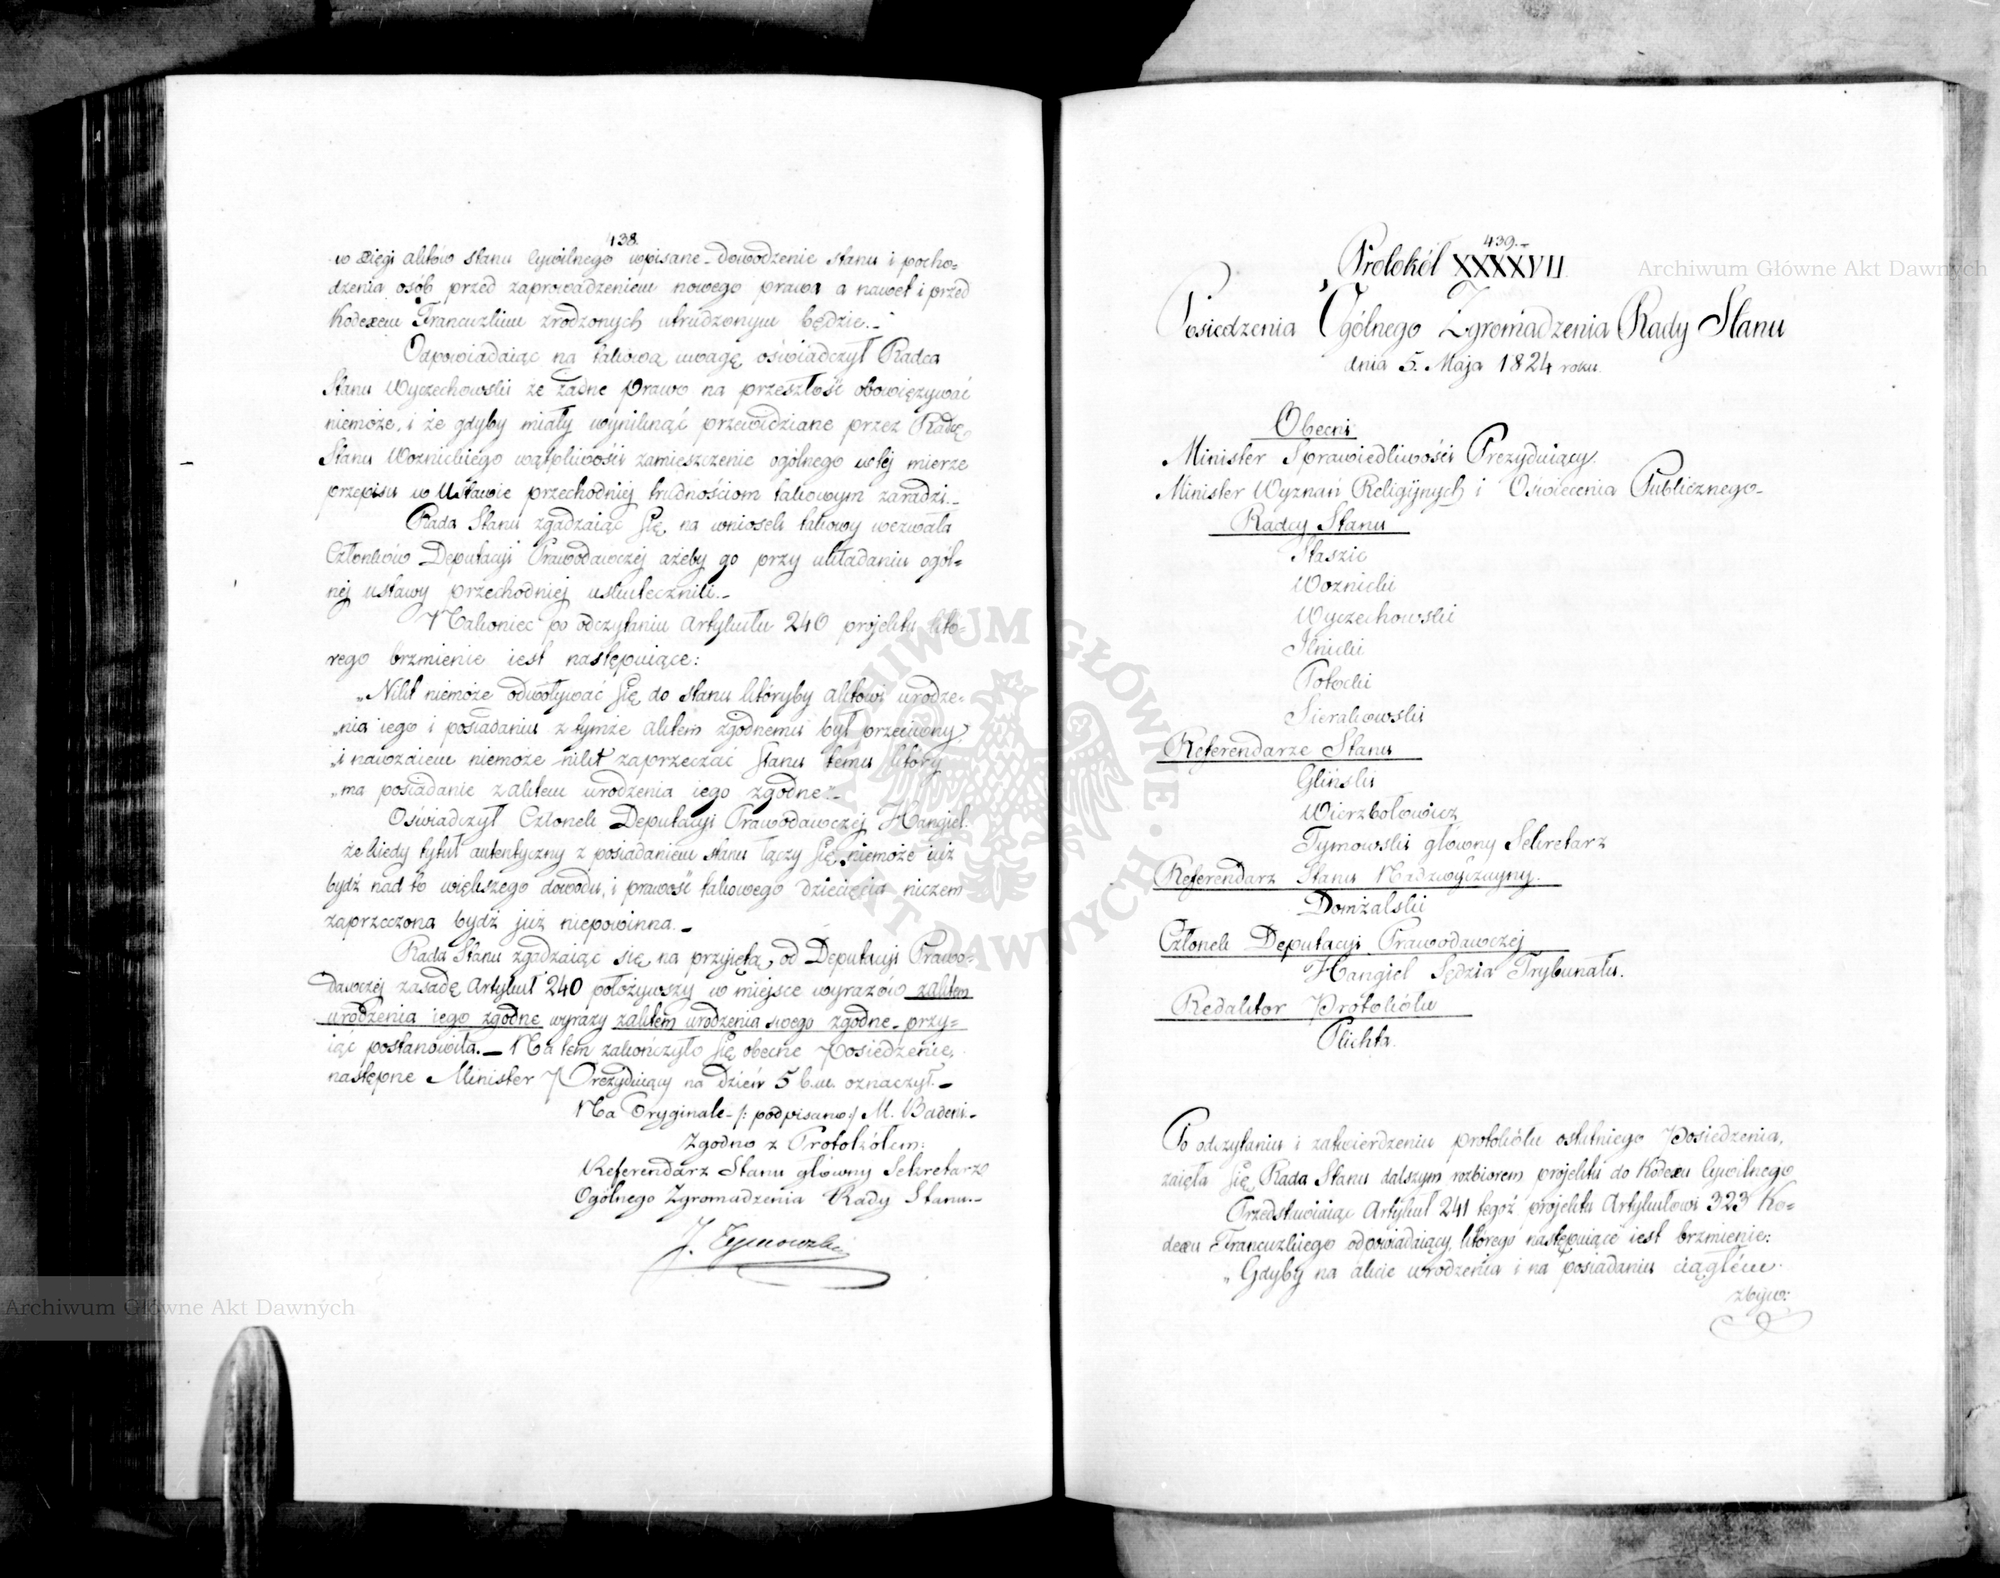 438.
w xięgi aktów stanu cywilnego wpisane dowodzenie stanu i pocho-
dzenia osób przed zaprowadzeniem nowego prawa a nawet i przed
Kodexem Francuzkim zrodzonych utrudzonym będzie._
Odpowiadaiąc na takową uwagę oświadczył Radca
Stanu Wyczechowski że żadne prawo na przeszłość obowięzywać
niemoże, i że gdyby miały wyniknąć przewidziane przez Radcę
Stanu Woznickiego wątpliwości zamieszczenie ogólnego w tej mierze
przepisu w Ustawie przechodniej trudnościom takowym zaradzi._
Rada Stanu zgadzaiąc się na wniosek takowy wezwała
Członków Deputacyi Prawodawczej ażeby go przy układaniu ogól-
nej ustawy przechodniej uskutecznili._
Nakoniec po odczytaniu Artykułu 240 projektu któ-
rego brzmienie iest następuiące:
„Nikt niemoże odwoływać się do stanu któryby aktowi urodze-
„nia iego i posiadaniu z tymże aktem zgodnemu był przeciwny
„i nawzaiem niemoże nikt zaprzeczać stanu temu który
„ma posiadanie z aktem urodzenia iego zgodne"_
Oświadczył Członek Deputacyi Prawodawczej Hangiel:
że kiedy tytuł autentyczny z posiadaniem stanu łączy się, niemoże iuż
bydź nad to większego dowodu, i prawość takowego dziecięcia niczem
zaprzeczona bydź już niepowinna._
Rada Stanu zgadzaiąc się na przyiętą od Deputacyi Prawo-
dawczej zasadę Artykuł 240 położywszy w miejsce wyrazów z aktem
urodzenia iego zgodne wyrazy z aktem urodzenia swego zgodne_przy-
iąć postanowiła._ Na tem zakończyło się obecne Posiedzenie,
następne Minister Prezyduiący na dzień 5 b.m. oznaczył._
Na Oryginale_/: podpisano :/ M. Badeni_
Zgodno z Protokółem:
Referendarz Stanu główny Sekretarz
Ogólnego Zgromadzenia Rady Stanu._
J. Tymowski
439.
Protokół XXXXVII.
Posiedzenia Ogólnego Zgromadzenia Rady Stanu
dnia 5. Maja 1824 roku.
Obecni
Minister Sprawiedliwości Prezyduiący.
Minister Wyznań Religijnych i Oświecenia Publicznego_
Radcy Stanu
Staszic
Woznicki
Wyczechowski
Ilnicki
Potocki
Sierakowski
Referendarze Stanu
Gliński
Wierzbołowicz
Tymowski główny Sekretarz
Referendarz Stanu Nadzwyczayny.
Domżalski
Członek Deputacyi Prawodawczej
Hangiel Sędzia Trybunału.
Redaktor Protokółu
Plichta.
Po odczytaniu i zatwierdzeniu protokółu ostatniego Posiedzenia,
zaięła się Rada Stanu dalszym rozbiorem projektu do Kodexu Cywilnego
Przedstawiaiąc Artykuł 241 tegoż projektu Artykułowi 323 Ko-
dexu Francuzkiego odpowiadaiący, którego następuiące iest brzmienie:
„Gdyby na akcie urodzenia i na posiadaniu ciągłem
zbyw:
Archiwum Główne Akt Dawnych
Archiwum Główne Akt Dawnych
ARCHIWUM GŁÓWNE AKT DAWNYCH